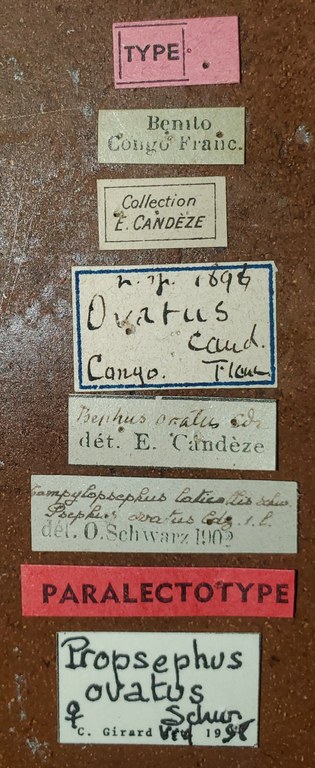 TYPE
Benito
Congo Franc.
Collection
E. CANDÈZE
1896
Ovatus
Cand.
Congo.
Psephus ovatus Cdz
dét. E. Candèze
Campylopsephus laticollis Schw.
Psephus ovatus Cdz. i. l.
dét. O. Schwarz 1902
PARALECTOTYPE
Propsephus
ovatus
♀ Schw.
C. Girard 19